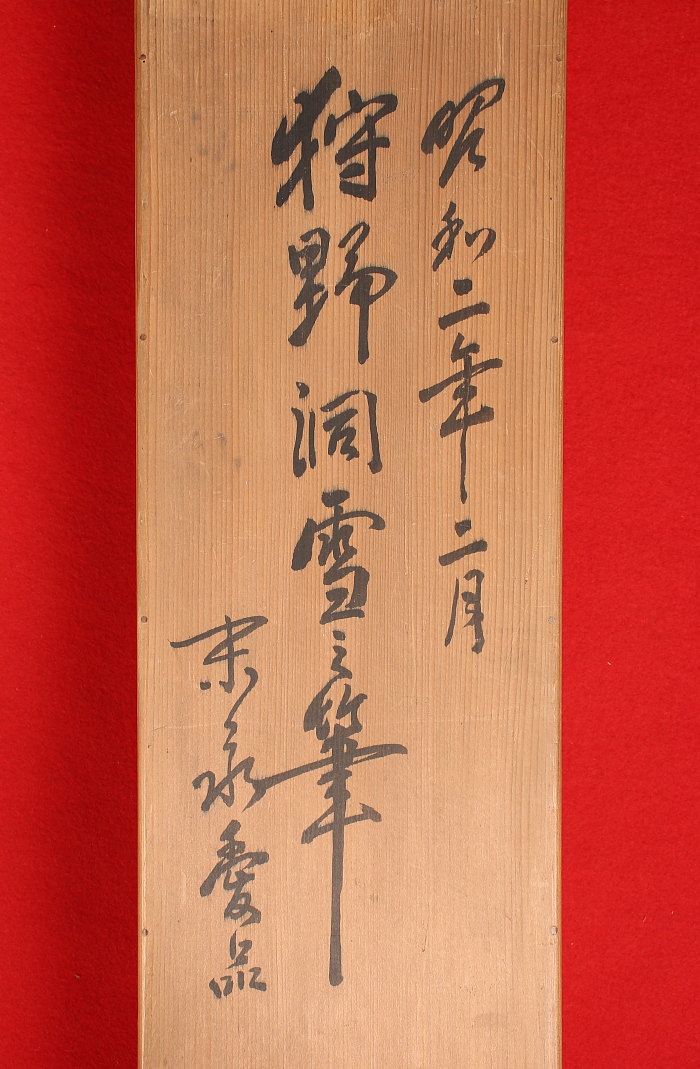 昭和二年二月
狩野洞雪之筆
末永愛品